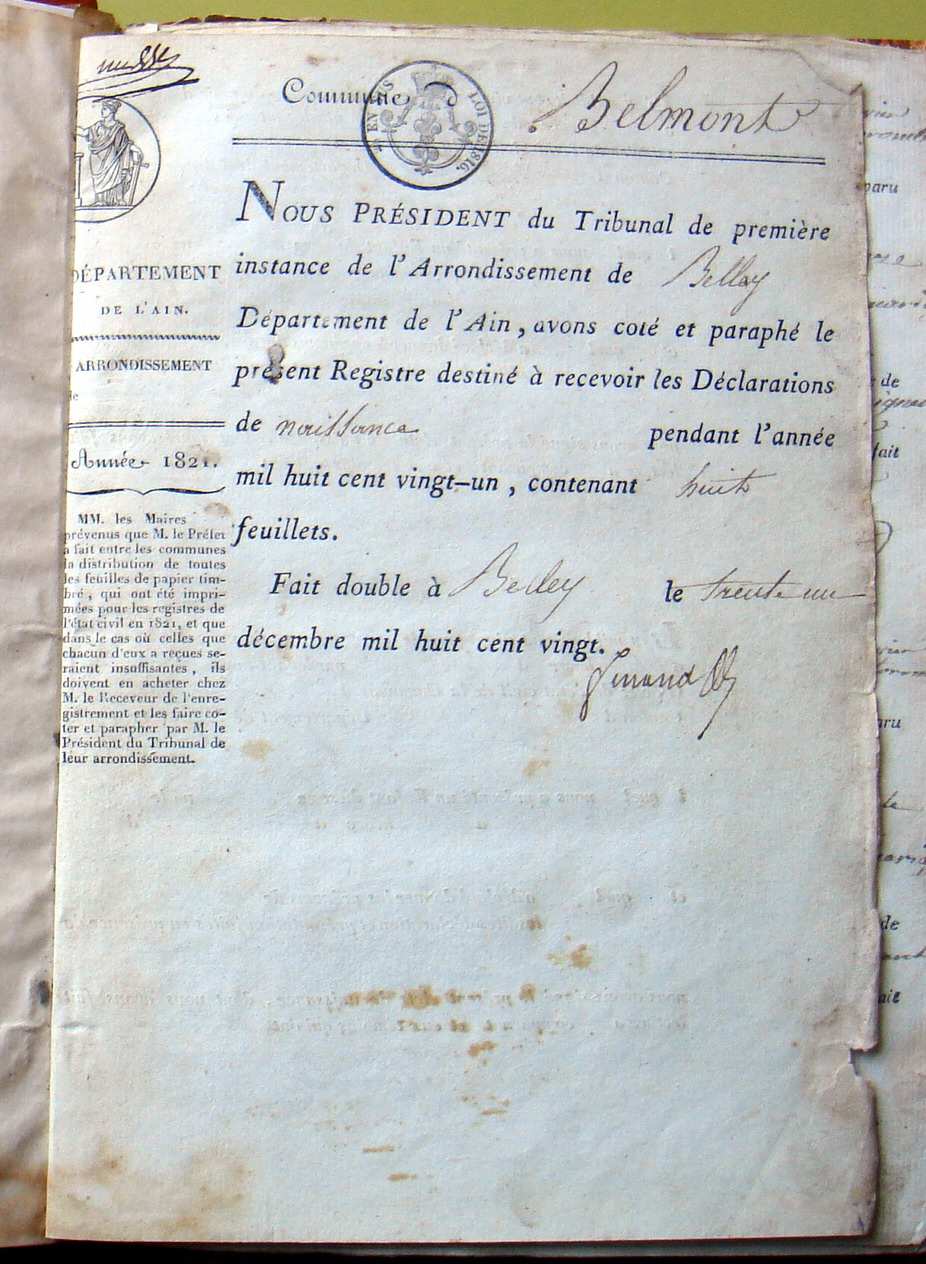 Commune d
Belmont
EN SUS
LOI DE 1816.
NOUS PRÉSIDENT du Tribunal de première
instance de l'Arrondissement de Belley
Département de l'Ain, avons coté et paraphé le
présent Registre destiné à recevoir les Déclarations
de naissance pendant l'année
mil huit cent vingt-un, contenant huit
feuillets.
Fait double à Belley le trente un
décembre mil huit cent vingt.
DÉPARTEMENT
DE L'AIN.
ARRONDISSEMENT
de
Année 1821.
MM. les Maires
prévenus que M. le Préfet
a fait entre les communes
la distribution de toutes
les feuilles de papier tim-
bré, qui ont été impri-
mées pour les registres de
l'état civil en 1821, et que
dans le cas où celles que
chacun d'eux a reçues se-
raient insuffisantes, ils
doivent en acheter chez
M. le Receveur de l'enre-
gistrement et les faire co-
ter et parapher par M. le
Président du Tribunal de
leur arrondissement.
paru
de
fait
paru
de
fait